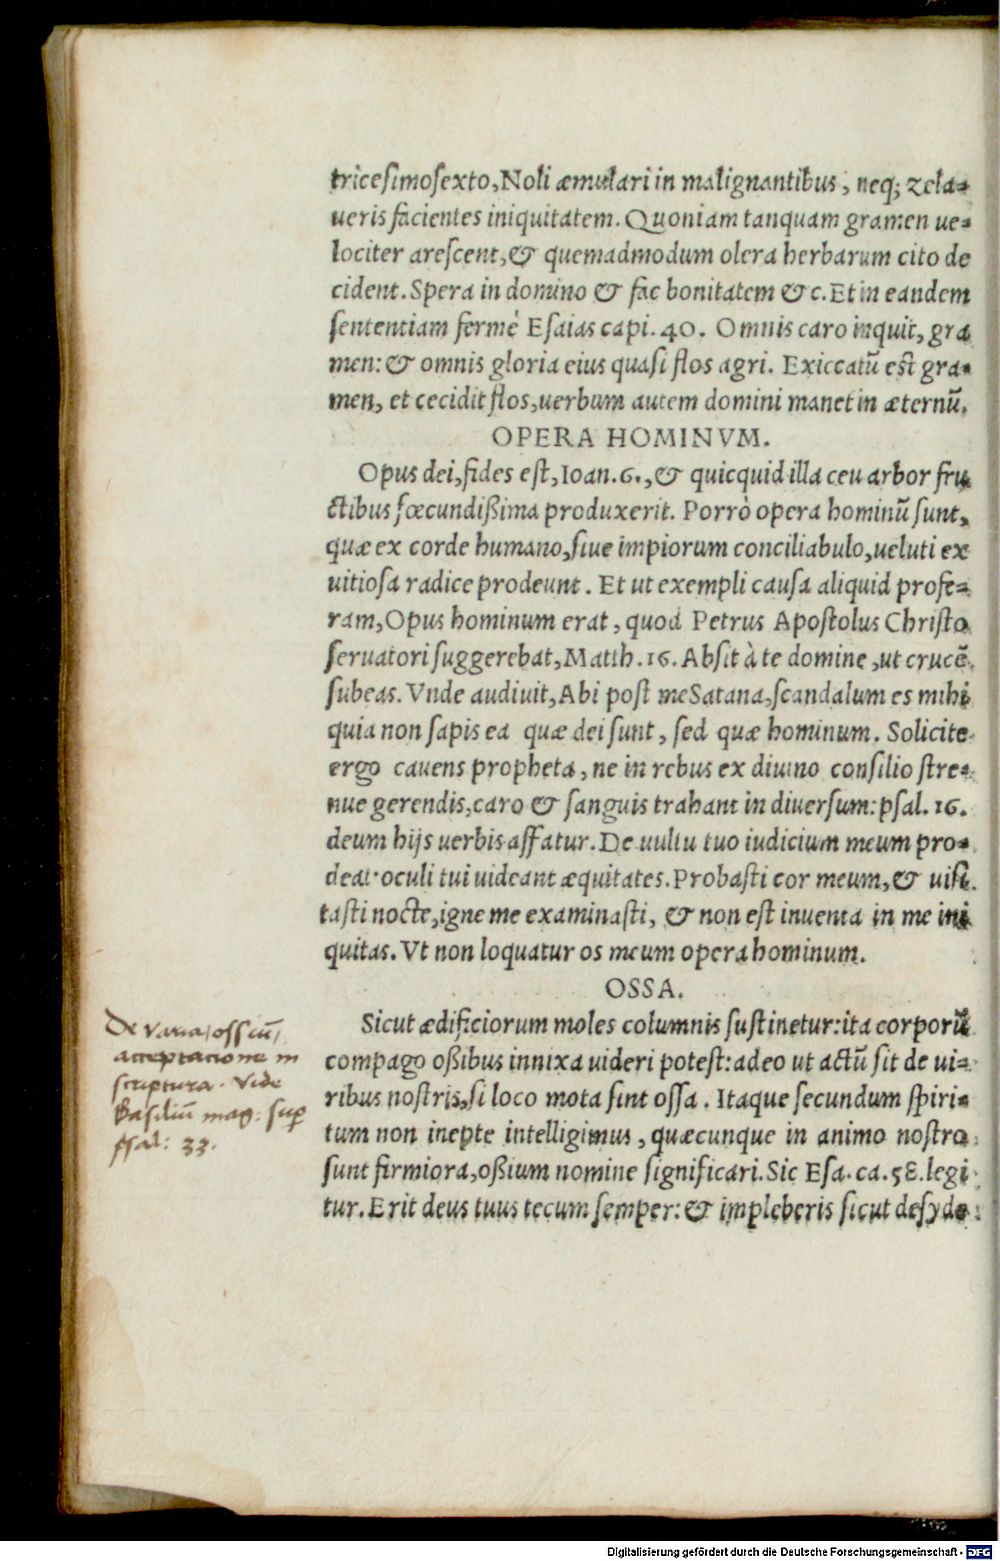 tricesimosexto, Noli æmulari in malignantibus, neq; zela-
ueris facientes iniquitatem. Quoniam tanquam gramen ue-
lociter arescent, & quemadmodum olera herbarum cito de
cident. Spera in domino & fac bonitatem &c. Et in eandem
sententiam fermè Esaias capi. 40. Omnis caro inquit, gra
men: & omnis gloria eius quasi flos agri. Exiccatũ est gra-
men, et cecidit flos, uerbum autem domini manet in æternũ.
OPERA HOMINVM.
Opus dei, fides est, Ioan. 6., & quicquid illa ceu arbor fru
ctibus fœcundißima produxerit. Porrò opera hominũ sunt,
quæ ex corde humano, siue impiorum conciliabulo, ueluti ex
uitiosa radice prodeunt. Et ut exempli causa aliquid profe-
ram, Opus hominum erat, quod Petrus Apostolus Christo
seruatori suggerebat, Matth. 16. Absit à te domine, ut crucẽ
subeas. Vnde audiuit, Abi post me Satana, scandalum es mihi
quia non sapis ea quæ dei sunt, sed quæ hominum. Solicite
ergo cauens propheta, ne in rebus ex diuino consilio stre-
nue gerendis, caro & sanguis trahant in diuersum: psal. 16.
deum hijs uerbis affatur. De uultu tuo iudicium meum pro-
deat· oculi tui uideant æquitates. Probasti cor meum, & uisi-
tasti nocte, igne me examinasti, & non est inuenta in me ini
quitas. Vt non loquatur os meum opera hominum.
OSSA.
Sicut ædificiorum moles columnis sustinetur: ita corporũ
compago oßibus innixa uideri potest: adeo ut actũ sit de ui-
ribus nostris, si loco mota sint ossa. Itaque secundum spiri-
tum non inepte intelligimus, quæcunque in animo nostro
sunt firmiora, oßium nomine significari. Sic Esa. ca. 58. legi
tur. Erit deus tuus tecum semper: & impleberis sicut desyde
De varia ossiũ
acceptatione in
scriptura. Vide
Basiliũ mag: sup
psal: 33.
Digitalisierung gefördert durch die Deutsche Forschungsgemeinschaft - DFG